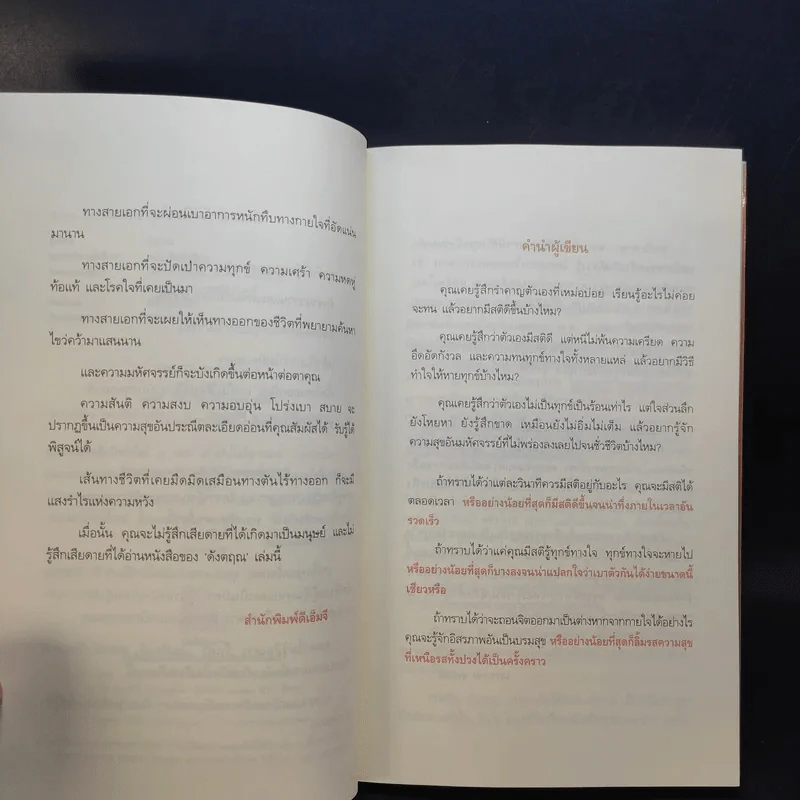 ทางสายเอกที่จะผ่อนเบาอาการหนักทึบทางกายใจที่อัดแน่น
มานาน
ทางสายเอกที่จะปัดเป่าความทุกข์ ความเศร้า ความหดหู่
ท้อแท้ และโรคใจที่เคยเป็นมา
ทางสายเอกที่จะเผยให้เห็นทางออกของชีวิตที่พยายามค้นหา
ไขว่คว้ามาแสนนาน
และความมหัศจรรย์ก็จะบังเกิดขึ้นต่อหน้าต่อตาคุณ
ความสันติ ความสงบ ความอบอุ่น โปร่งเบา สบาย จะ
ปรากฏขึ้นเป็นความสุขอันประณีตละเอียดอ่อนที่คุณสัมผัสได้ รับรู้ได้
พิสูจน์ได้
เส้นทางชีวิตที่เคยมืดมิดเสมือนทางตันไร้ทางออก ก็จะมี
แสงรำไรแห่งความหวัง
เมื่อนั้น คุณจะไม่รู้สึกเสียดายที่ได้เกิดมาเป็นมนุษย์ และไม่
รู้สึกเสียดายที่ได้อ่านหนังสือของ 'ดังตฤณ' เล่มนี้
สำนักพิมพ์ดีเอ็มจี
คำนำผู้เขียน
คุณเคยรู้สึกรำคาญตัวเองที่เหม่อบ่อย เรียนรู้อะไรไม่ค่อย
จะทน แล้วอยากมีสติดีขึ้นบ้างไหม?
คุณเคยรู้สึกว่าตัวเองมีสติดี แต่หนีไม่พ้นความเครียด ความ
อึดอัดกังวล และความทนทุกข์ทางใจทั้งหลายแหล่ แล้วอยากมีวิธี
ทำใจให้หายทุกข์บ้างไหม?
คุณเคยรู้สึกว่าตัวเองไม่เป็นทุกข์เป็นร้อนเท่าไร แต่ใจส่วนลึก
ยังโหยหา ยังรู้สึกขาด เหมือนยังไม่อิ่มไม่เต็ม แล้วอยากรู้จัก
ความสุขอันมหัศจรรย์ที่ไม่พร่องลงเลยไปจนชั่วชีวิตบ้างไหม?
ถ้าทราบได้ว่าแต่ละวินาทีควรมีสติอยู่กับอะไร คุณจะมีสติได้
ตลอดเวลา หรืออย่างน้อยที่สุดก็มีสติดีขึ้นจนน่าทึ่งภายในเวลาอัน
รวดเร็ว
ถ้าทราบได้ว่าแค่คุณมีสติรู้ทุกข์ทางใจ ทุกข์ทางใจจะหายไป
หรืออย่างน้อยที่สุดก็บางลงจนน่าแปลกใจว่าเบาตัวกันได้ง่ายขนาดนี้
เชียวหรือ
ถ้าทราบได้ว่าจะถอนจิตออกมาเป็นต่างหากจากกายใจได้อย่างไร
คุณจะรู้จักอิสรภาพอันเป็นบรมสุข หรืออย่างน้อยที่สุดก็ลิ้มรสความสุข
ที่เหนือรสทั้งปวงได้เป็นครั้งคราว